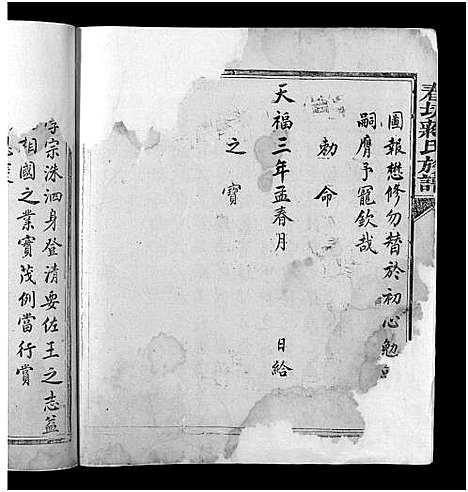 春坊蔣氏族譜
圖報懋修勿替於初心勉
嗣膺予寵欽哉
勅命
天福三年孟春月　日給
之寶
宗洙泗身登清要佐王之志益
相國之業實茂例當行賞